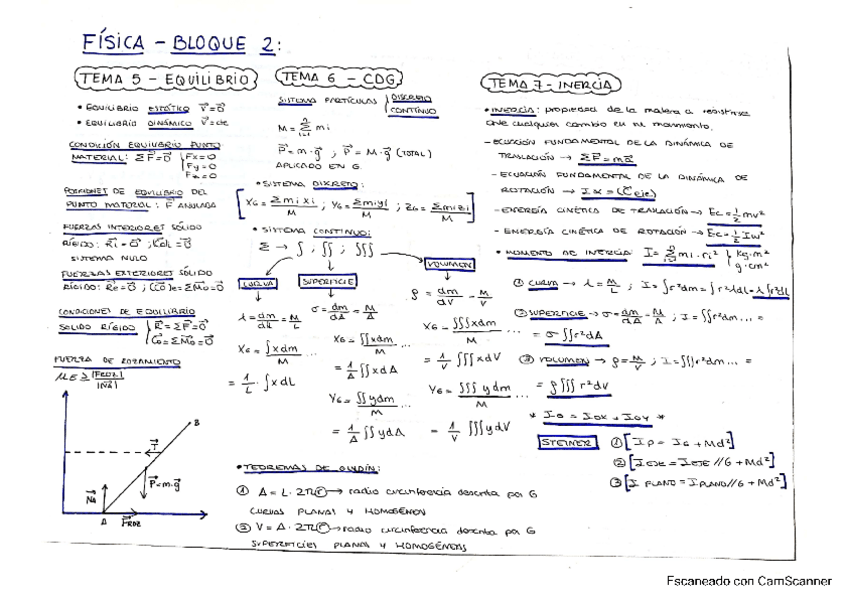 FÍSICA - BLOQUE 2:
TEMA 5 - EQUILIBRIO
• EQUILIBRIO ESTÁTICO V⃗=0⃗
• EQUILIBRIO DINÁMICO V⃗=cte
CONDICIÓN EQUILIBRIO PUNTO
MATERIAL: ΣF⃗=0⃗ { Fx=0
Fy=0
Fz=0
POSICIONES DE EQUILIBRIO DEL
PUNTO MATERIAL: F⃗ ANULADA
FUERZAS INTERIORES SÓLIDO
RÍGIDO:
SISTEMA NULO
FUERZAS EXTERIORES SÓLIDO
RÍGIDO: R⃗e=0⃗ ; (C⃗o)e=ΣM⃗o=0⃗
CONDICIONES DE EQUILIBRIO
SOLIDO RÍGIDO { R⃗=ΣF⃗=0⃗
C⃗o=ΣM⃗o=0⃗
FUERZA DE ROZAMIENTO
μE ≥ |FROZ|/|NA|
B
T⃗
P⃗=m·g⃗
N⃗A
A
F⃗ROZ
TEMA 6 - CDG
SISTEMA PARTÍCULAS { DISCRETO
CONTINUO
M = Σ mi
P⃗=m·g⃗ ; P⃗ = M·g⃗ (TOTAL)
APLICADO EN G
• SISTEMA DISCRETO:
[XG = Σmixi/M ; YG = Σmiyi/M ; ZG = Σmizi/M]
• SISTEMA CONTINUO:
Σ → ∫, ∬ ; ∭
CURVA
SUPERFICIE
VOLUMEN
λ = dm/dL = M/L
σ = dm/dA = M/A
ρ = dm/dV = M/V
XG = ∫xdm/M
= 1/L · ∫xdL
XG = ∬xdm/M ...
= 1/A ∬xdA
YG = ∬ydm/M ...
= 1/A ∬ydA
XG = ∭xdm/M ...
= 1/V ∭xdV
YG = ∭ydm/M ...
= 1/V ∭ydV
• TEOREMAS DE GULDIN:
① A = L · 2π(r) → radio circunferencia descrita por G
CURVAS PLANAS Y HOMOGÉNEAS
② V = A · 2π(r) → radio circunferencia descrita por G
SUPERFICIES PLANAS Y HOMOGÉNEAS
TEMA 7 - INERCIA
• INERCIA: propiedad de la materia a resistirse
ante cualquier cambio en su movimiento.
- ECUACIÓN FUNDAMENTAL DE LA DINÁMICA DE
TRASLACIÓN → ΣF⃗ = ma⃗
- ECUACIÓN FUNDAMENTAL DE LA DINÁMICA DE
ROTACIÓN → Iα = (C⃗eje)
- ENERGÍA CINÉTICA DE TRASLACIÓN → Ec=1/2 mv²
- ENERGÍA CINÉTICA DE ROTACIÓN → Ec=1/2 Iω²
• MOMENTO DE INERCIA: I = Σ mi·ri² } kg·m²
g·cm²
① CURVA → λ = M/L ; I = ∫r²dm = ∫r²λdL = λ∫r²dL
② SUPERFICIE → σ = dm/dA = M/A ; I = ∬r²dm ... =
= σ∬r²dA
③ VOLUMEN → ρ = M/V ; I = ∭r²dm ... =
= ρ∭r²dV
* Io = Iox + Ioy *
STEINER
① [IP = IG + Md²]
② [IEJE = IEJE//G + Md²]
③ [I PLANO = I PLANO//G + Md²]
Escaneado con CamScanner